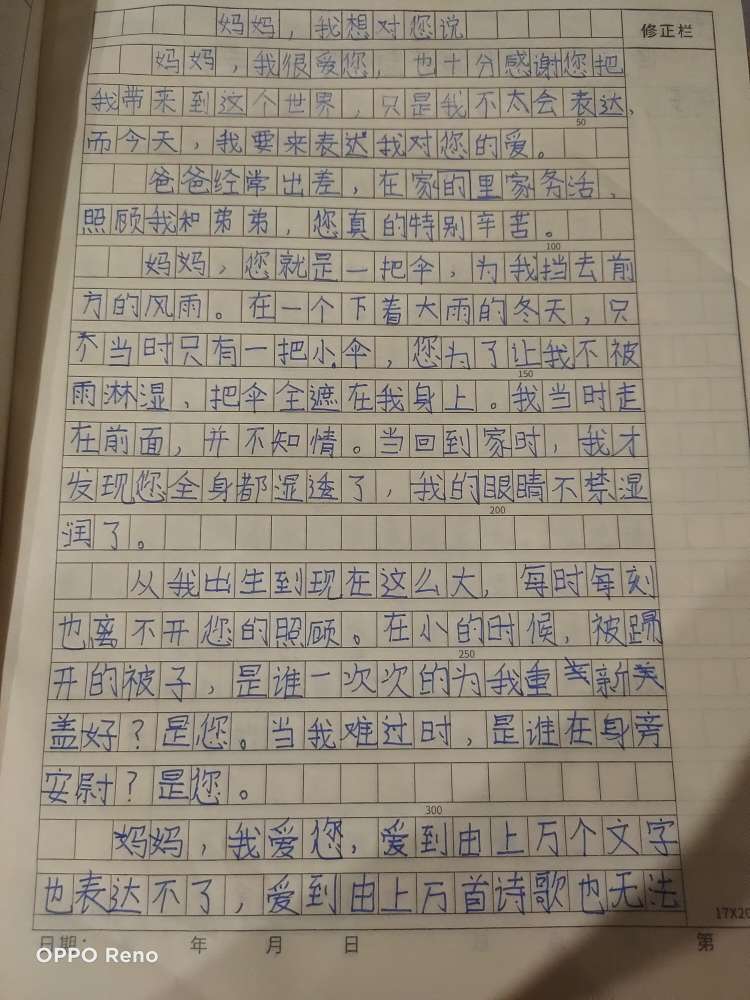 妈妈，我想对您说
修正栏
妈妈，我很爱您，也十分感谢您把
我带来到这个世界，只是我不太会表达，
50
而今天，我要来表达我对您的爱。
爸爸经常出差，在家的里家务活，
照顾我和弟弟，您真的特别辛苦。
100
妈妈，您就是一把伞，为我挡去前
方的风雨。在一个下着大雨的冬天，只
当时只有一把小伞，您为了让我不被
150
雨淋湿，把伞全遮在我身上。我当时走
在前面，并不知情。当回到家时，我才
发现您全身都湿透了，我的眼睛不禁湿
200
润了。
从我出生到现在这么大，每时每刻
也离不开您的照顾。在小的时候，被踢
250
开的被子，是谁一次次的为我重新
盖好？是您。当我难过时，是谁在身旁
安尉？是您。
300
妈妈，我爱您，爱到由上万个文字
也表达不了，爱到由上万首诗歌也无法
17X20
日期： 年 月 日 第
OPPO Reno